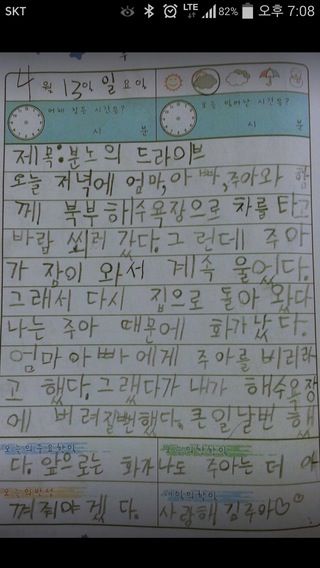 SKT LTE 82% 오후 7:08
4월 13일 일요일
어제 잠든 시간은? 오늘 일어난 시간은?
시 분 시 분
제목:분노의 드라이브
오늘 저녁에 엄마,아빠,주아와 함
께 북부해수욕장으로 차를타고
바람 쐬러 갔다.그런데 주아
가 잠이 와서 계속 울었다.
그래서 다시 집으로 돌아 왔다
나는 주아 때문에 화가 났다.
엄마아빠에게 주아를 버리라
고 했다.그랬다가 내가 해수욕장
에 버려질뻔했다.큰일날번 했
오늘의중요한일 오늘의착한일
다. 앞으로는 화가나도 주아는 더 아
오늘의반성 내일의할일
껴줘야겠다. 사랑해 김주아♡